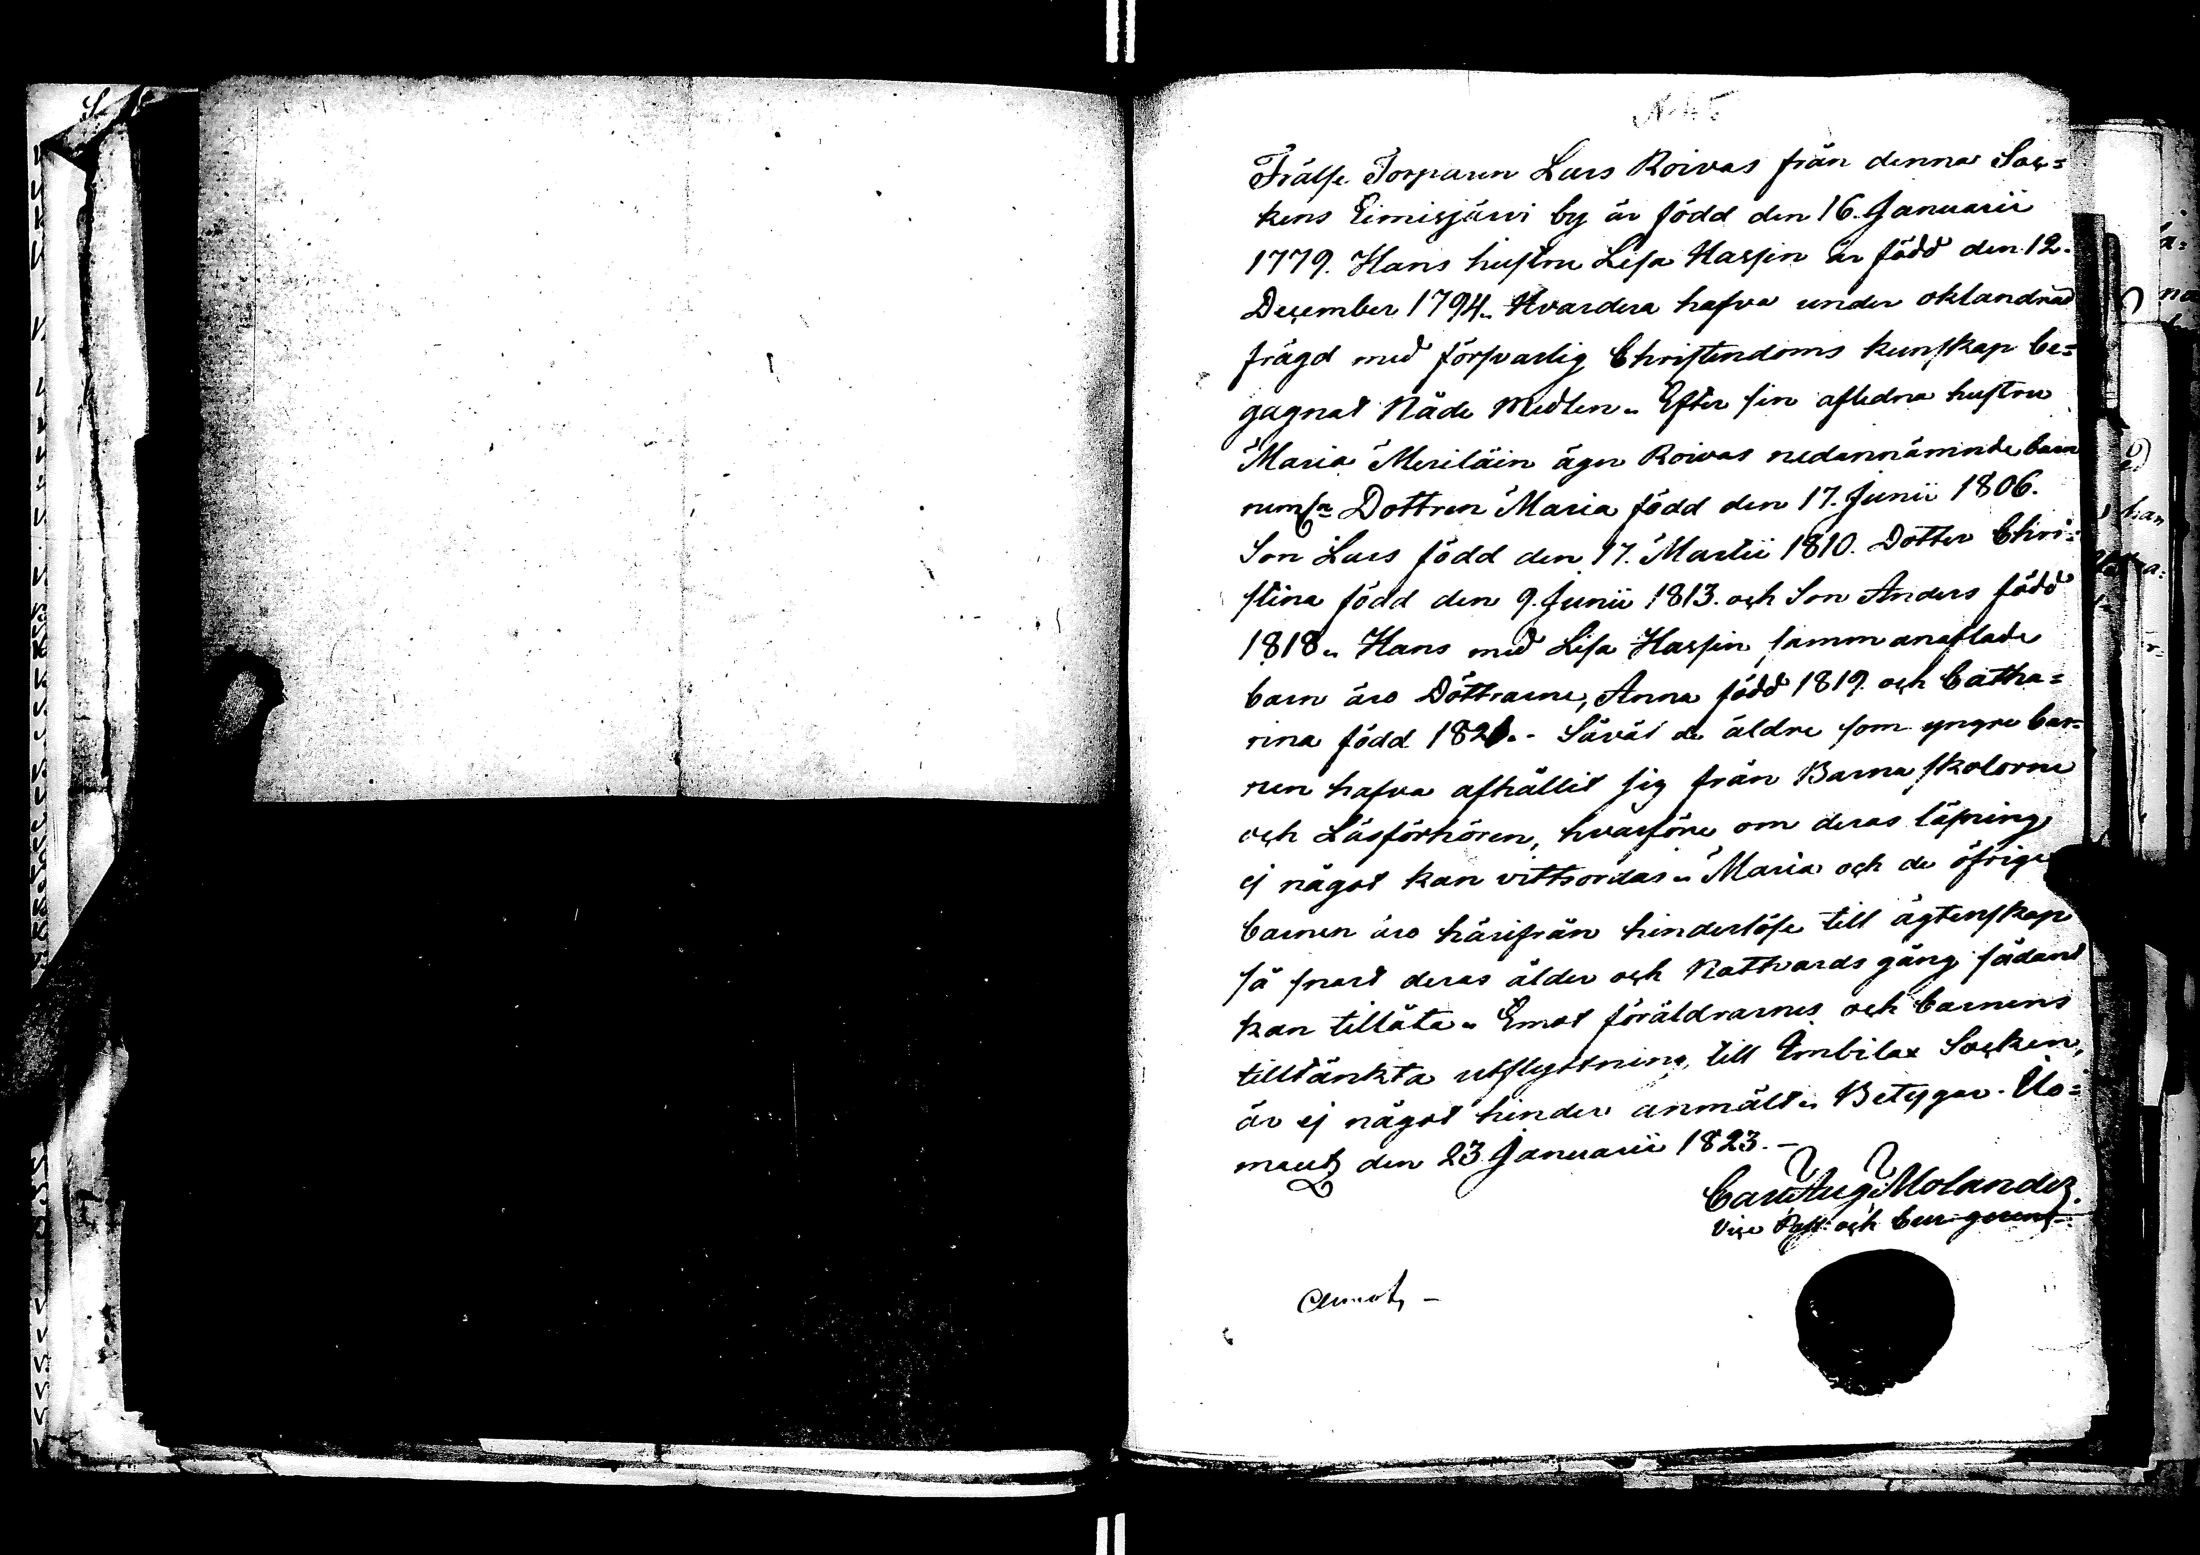 Frälse Torparen Lars Roivas från denna Soc=
kens Eimisjärvi by är född den 16. Januarii
1779. Hans hustru Lisa Hassin är född den 12.
December 1794. Hvardera hafva under oklandrad
frägd med försvarlig Christendoms kunskap be=
gagnat Nåde Medlen. Efter sin aflidna hustru
Maria Meriläin äger Roivas nedannämnde barn
Dottren Maria född den 17. Junii 1806.
Son Lars född den 17. Martii 1810. Dotter Chri=
stina född den 9. Junii 1813. och Son Anders född
1818. Hans med Lisa Hassin sammanaflade
barn äro Döttrarne, Anna född 1819. och Catha=
rina född 1821. Såväl de äldre som yngre bar=
nen hafva afhållit sig från Barnaskolorne
och Läsförhören, hvarföre om deras läsning
ej något kan vittsordas. Maria och de öfrige
barnen äro härifrån hinderlöse till ägtenskap
så snart deras ålder och Nattvards gång sådant
kan tillåta. Emot föräldrarnes och barnens
tilltänkta utflyttning till Imbilax Socken,
är ej något hinder anmält. Betygar. Ilo=
mantz den 23 Januarii 1823.
Carl Aug. Molander.
Vice Past. och Cur. gerens